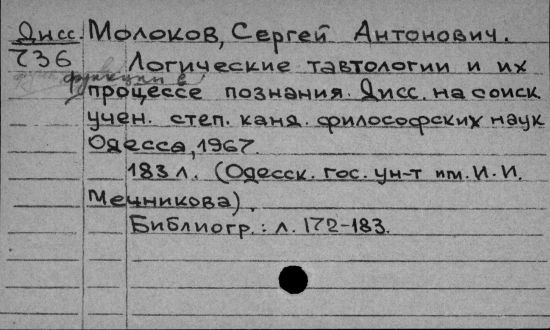 Дисс. Молоков, Сергей Антонович.
736 Логические тавтологии и их
функции в
процессе познания. Дисс. на соиск.
учен. степ. канд. философских наук
Одесса, 1967.
183 л. (Одесск. гос. ун-т им. И. И.
Мечникова).
Библиогр.: л. 172-183.